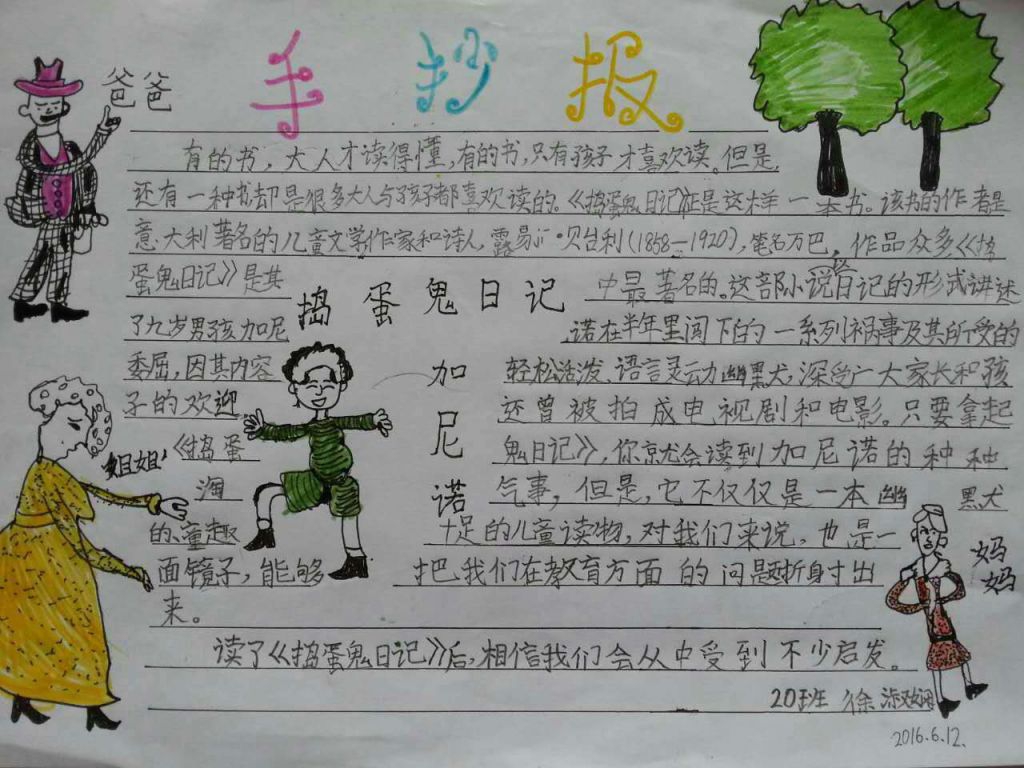 手抄报
爸爸
有的书，大人才读得懂，有的书，只有孩子才喜欢读。但是，
还有一种书却是很多大人与孩子都喜欢读的。《捣蛋鬼日记》正是这样一本书。该书的作者是
意大利著名的儿童文学作家和诗人，露易·贝台利(1858—1920)，笔名万巴，作品众多《捣
蛋鬼日记》是其中最著名的。这部小说以日记的形式讲述
捣蛋鬼日记
了九岁男孩加尼诺在半年里闯下的一系列祸事及其所受的
委屈，因其内容轻松活泼、语言灵动幽默，深受广大家长和孩
子的欢迎还曾被拍成电视剧和电影。只要拿起
《捣蛋鬼日记》，你就会读到加尼诺的种种
淘气事，但是，它不仅仅是一本幽默
的、童趣十足的儿童读物，对我们来说，也是一
面镜子，能够把我们在教育方面的问题折身寸出
来。
加尼诺
姐姐
妈妈
读了《捣蛋鬼日记》后，相信我们会从中受到不少启发。
20班 徐淑娴
2016.6.12.